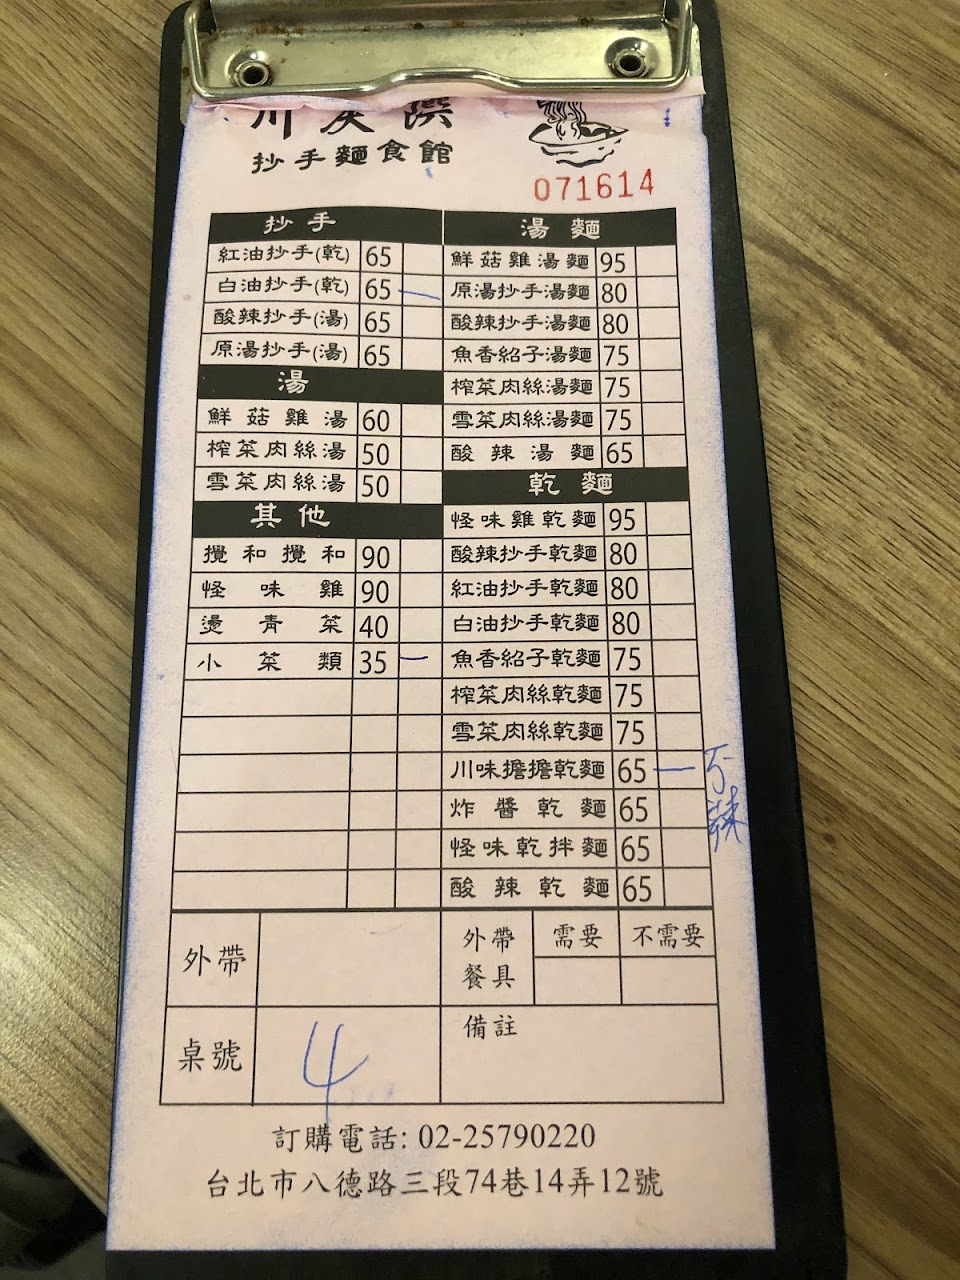 抄手麵食館
071614
抄手
紅油抄手(乾) 65
白油抄手(乾) 65 一
酸辣抄手(湯) 65
原湯抄手(湯) 65
湯
鮮菇雞湯 60
榨菜肉絲湯 50
雪菜肉絲湯 50
其他
攪和攪和 90
怪味雞 90
燙青菜 40
小菜類 35 一
湯麵
鮮菇雞湯麵 95
原湯抄手湯麵 80
酸辣抄手湯麵 80
魚香紹子湯麵 75
榨菜肉絲湯麵 75
雪菜肉絲湯麵 75
酸辣湯麵 65
乾麵
怪味雞乾麵 95
酸辣抄手乾麵 80
紅油抄手乾麵 80
白油抄手乾麵 80
魚香紹子乾麵 75
榨菜肉絲乾麵 75
雪菜肉絲乾麵 75
川味擔擔乾麵 65 一 不辣
炸醬乾麵 65
怪味乾拌麵 65
酸辣乾麵 65
外帶
外帶餐具 需要 不需要
桌號 4
備註
訂購電話: 02-25790220
台北市八德路三段74巷14弄12號